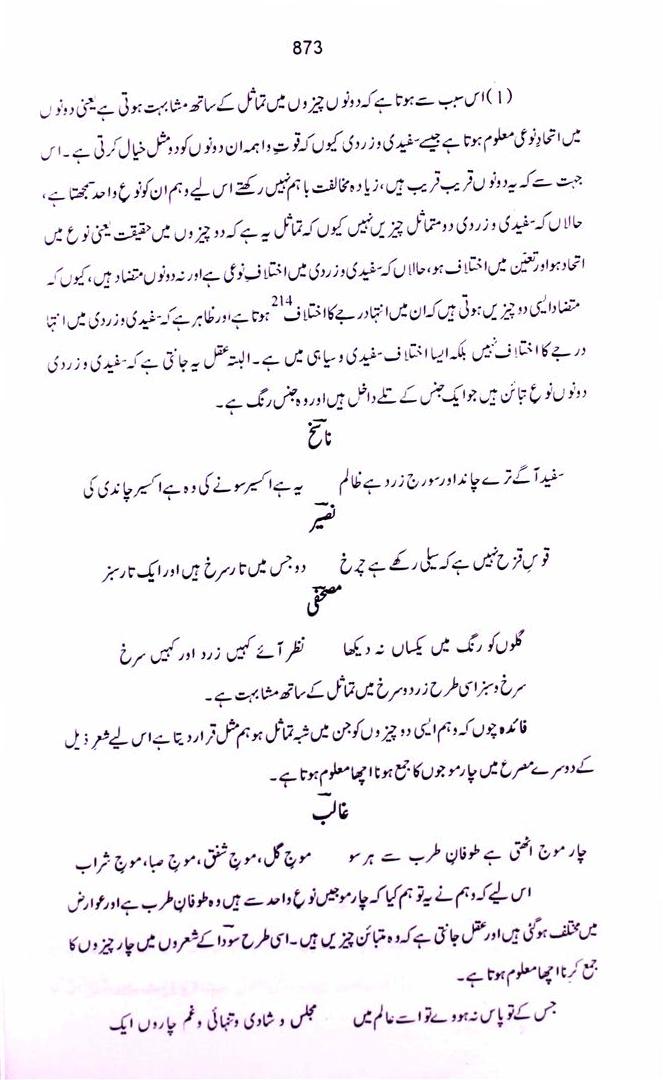 873
(1) اس سبب سے ہوتا ہے کہ دونوں چیزوں میں تماثل کے ساتھ مشابہت ہوتی ہے یعنی دونوں
میں اتحادِ نوعی معلوم ہوتا ہے جیسے سفیدی و زردی کیوں کہ قوتِ واہمہ ان دونوں کو دو مثل خیال کرتی ہے۔ اس
جہت سے کہ یہ دونوں قریب قریب ہیں، زیادہ مخالفت باہم نہیں رکھتے اس لیے وہم ان کو نوعِ واحد سمجھتا ہے،
حالاں کہ سفیدی و زردی دو متماثل چیزیں نہیں کیوں کہ تماثل یہ ہے کہ دو چیزوں میں حقیقت یعنی نوع میں
اتحاد ہو اور تعیّن میں اختلاف ہو، حالاں کہ سفیدی و زردی میں اختلافِ نوعی ہے اور نہ دونوں متضاد ہیں، کیوں کہ
متضاد ایسی دو چیزیں ہوتی ہیں کہ ان میں انتہا درجے کا اختلاف214 ہوتا ہے اور ظاہر ہے کہ سفیدی و زردی میں انتہا
درجے کا اختلاف نہیں بلکہ ایسا اختلاف سفیدی و سیاہی میں ہے۔ البتہ عقل یہ جانتی ہے کہ سفیدی و زردی
دونوں نوعِ تبائن ہیں جو ایک جنس کے تلے داخل ہیں اور وہ جنس رنگ ہے۔
ناسخ
سفید آگے ترے چاند اور سورج زرد ہے ظالم یہ ہے اکسیر سونے کی وہ ہے اکسیر چاندی کی
نصیر
قوسِ قزح نہیں ہے کہ سیلی رکھے ہے چرخ دو جس میں تار سرخ ہیں اور ایک تار سبز
مصحفی
گلوں کو رنگ میں یکساں نہ دیکھا نظر آئے کہیں زرد اور کہیں سرخ
سرخ و سبز اسی طرح زرد و سرخ میں تماثل کے ساتھ مشابہت ہے۔
فائدہ چوں کہ وہم ایسی دو چیزوں کو جن میں شبہ تماثل ہو ہم مثل قرار دیتا ہے اس لیے شعرِ ذیل
کے دوسرے مصرع میں چار موجوں کا جمع ہونا اچھا معلوم ہوتا ہے۔
غالب
چار موج اٹھتی ہے طوفانِ طرب سے ہر سو موجِ گل، موجِ شفق، موجِ صبا، موجِ شراب
اس لیے کہ وہم نے یہ توہم کیا کہ چار موجیں نوعِ واحد سے ہیں وہ طوفانِ طرب ہے اور عوارض
میں مختلف ہوگئی ہیں اور عقل جانتی ہے کہ وہ متبائن چیزیں ہیں۔ اسی طرح سودا کے شعروں میں چار چیزوں کا
جمع کرنا اچھا معلوم ہوتا ہے۔
جس کے تو پاس نہ ہووے تو اسے عالم میں مجلس و شادی و تنہائی و غم چاروں ایک